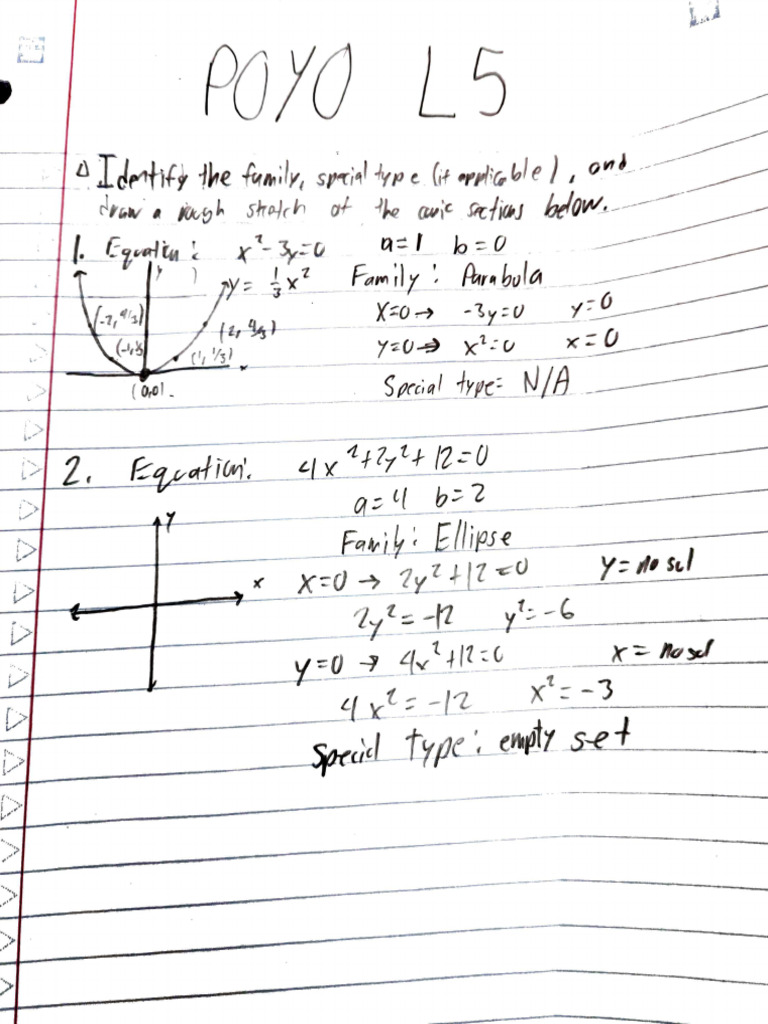 POYO L5
Identify the family, special type (if applicable), and
draw a rough sketch of the conic sections below.
1. Equation: x² - 3y = 0 a = 1 b = 0
y
y = 1/3 x² Family: Parabola
(-2, 4/3) (2, 4/3) x=0 → -3y=0 y=0
(-1, 1/3) (1, 1/3) y=0 → x²=0 x=0
(0,0) Special type: N/A
2. Equation: 4x² + 2y² + 12 = 0
a = 4 b = 2
y
Family: Ellipse
x x=0 → 2y² + 12 = 0 y = no sol
2y² = -12 y² = -6
y=0 → 4x² + 12 = 0 x = no sol
4x² = -12 x² = -3
Special type: empty set